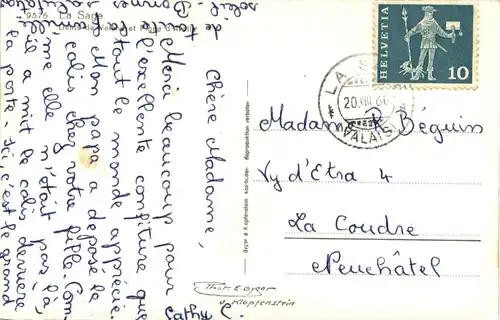 9576 La Sage
Dents de Veisivi et
soleil - Bonnes
de toute
la famille
Chère Madame,
Merci beaucoup pour
l'excellente confiture que
tout le monde apprécie.
Mon papa a déposé le
colis chez votre fille. Com-
me elle n'était pas là,
il a mit le colis derrière
la porte. Ici, c'est le grand
HELVETIA
10
LA SAGE
20.VIII.66
(VALAIS)
Madame R. Béguin
Vy d'Etra 4
La Coudre
Neuchâtel
Gyger & Klopfenstein Adelboden Reproduktion verboten
Phot. E. Gyger
u. Klopfenstein